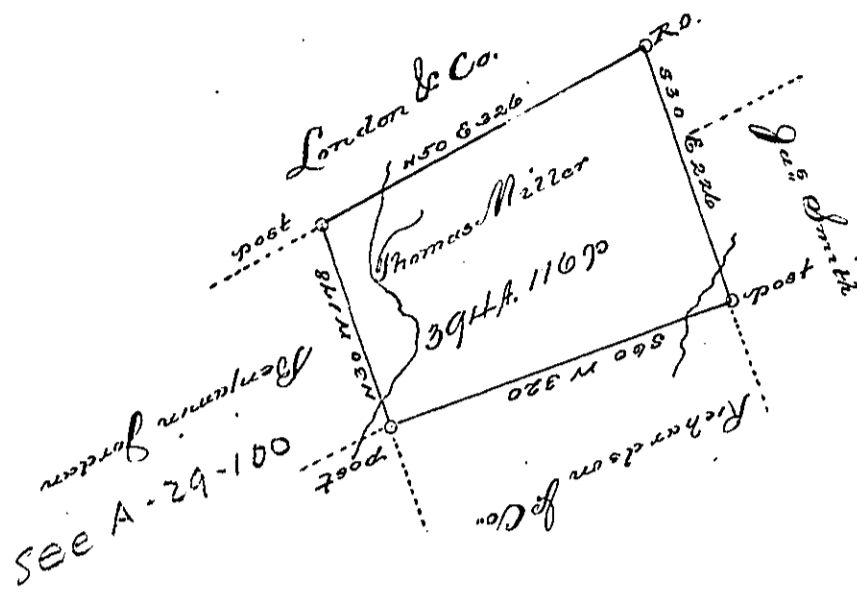 London & Co.
R.O.
N50 E 326
S30 E 226
Jas Smith
post
Thomas Miller
394A. 116p
N30 W 148
post
S60 W 320
Benjamin Jordan
post
Richardson & Co.
see A-29-100